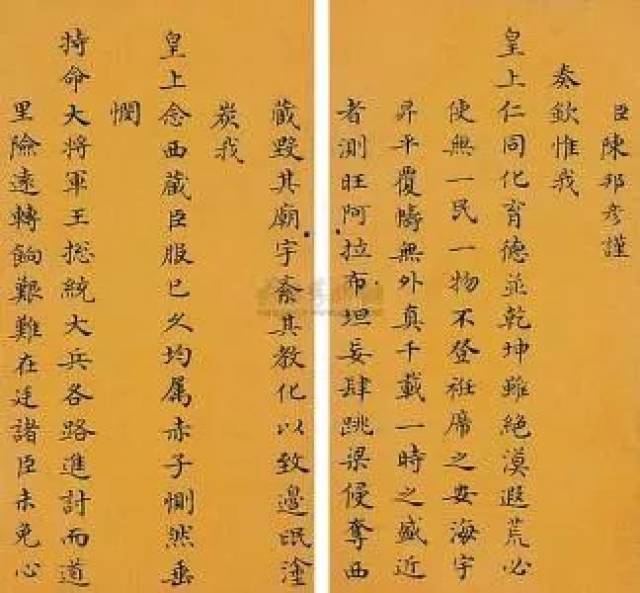 臣陳邦彥謹
奏欽惟我
皇上仁同化育德並乾坤雖絕漠遐荒必
使無一民一物不登衽席之安海宇
昇平覆幬無外真千載一時之盛近
者測旺阿拉布坦妄肆跳梁侵奪西
藏毀其廟宇紊其教化以致邊氓塗
炭我
皇上念西藏臣服已久均属赤子惻然垂
憫
特命大將軍王揔統大兵各路進討而道
里險遠轉餉艱難在廷諸臣未免心